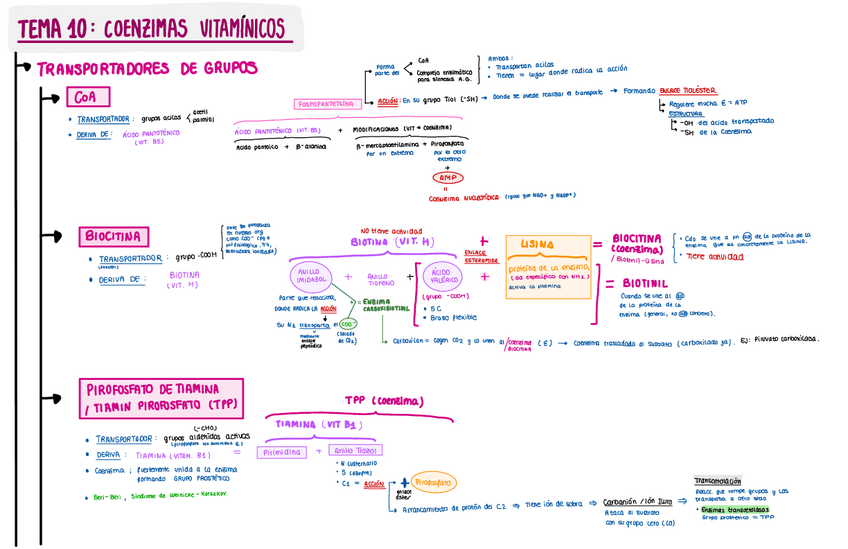 TEMA 10: COENZIMAS VITAMÍNICOS
TRANSPORTADORES DE GRUPOS
CoA
• TRANSPORTADOR: grupos acilos
acetil
palmitil
• DERIVA DE: ÁCIDO PANTOTÉNICO
(VIT. B5)
FOSFOPANTETEÍNA
Forma
parte del
CoA
Complejo enzimático
para síntesis A.G.
Ambos:
• Transportan acilos
• Tienen = lugar donde radica la acción
ACCIÓN: En su grupo Tiol (-SH) → Donde se puede realizar el transporte → Formando ENLACE TIOLÉSTER
Requiere mucha E = ATP
ESTRUCTURA
-OH del ácido transportado
-SH de la Coenzima
ÁCIDO PANTOTÉNICO (VIT. B5) + MODIFICACIONES (VIT → COENZIMA)
Ácido pantoico + β-alanina
β-mercaptoetilamina + Pirofosfato
Por un extremo
Por el otro
extremo
+
AMP
=
COENZIMA NUCLEOTÍDICA (igual que NAD+ y NADP+)
BIOCITINA
• TRANSPORTADOR: grupo -COOH
• DERIVA DE: BIOTINA
(VIT. H)
NO tiene actividad
BIOTINA (VIT. H) + LISINA = BIOCITINA
(coenzima)
/ Biotinil-Lisina
• Cdo se une a un aa de la proteína de la
enzima que es concretamente la LISINA.
• Tiene actividad
ENLACE
ANILLO
IMIDAZOL
+ ANILLO
TIOFENO
+ ÁCIDO
VALÉRICO
(grupo -COOH)
• 5 C
• Brazo flexible
+
proteína de la enzima
(aa específico con NH2)
Activa la vitamina
= BIOTINIL
Cuando se une al aa
de la proteína de la
enzima (general, no aa concreto).
Parte que reacciona,
DONDE RADICA LA ACCIÓN
Su N1 transporta el COO-
mediante
enlace
= ENZIMA
• Carboxilan = Cogen CO2 y la unen al /coenzima
BIOCITINA
(E) → Coenzima trasladada al sustrato (carboxilado ya). Ej: Piruvato carboxilasa.
PIROFOSFATO DE TIAMINA
/ TIAMIN PIROFOSFATO (TPP)
(-CHO)
• TRANSPORTADOR: grupos aldehídos activos
• DERIVA: TIAMINA (VITAM. B1)
• Coenzima; fuertemente unida a la enzima
formando GRUPO PROSTÉTICO
• Beri-Beri, Síndrome de Wernicke-Korsakov.
TPP (coenzima)
TIAMINA (VIT B1)
= Pirimidina + Anillo Tiazol
• N cuaternario
• C2 = ACCIÓN
+ Pirofosfato
enlace
éster
Arrancamiento de protón del C2 ⇒ Tiene ión de sobra ⇒ Carbanión / Ión Iluro ⇒
Ataca al sustrato
con su grupo ceto (CO)
Transcetolación
Reacc. que rompe grupos y los
transporta a otro resto
• Enzimas transcetolasas
Grupo prostético = TPP